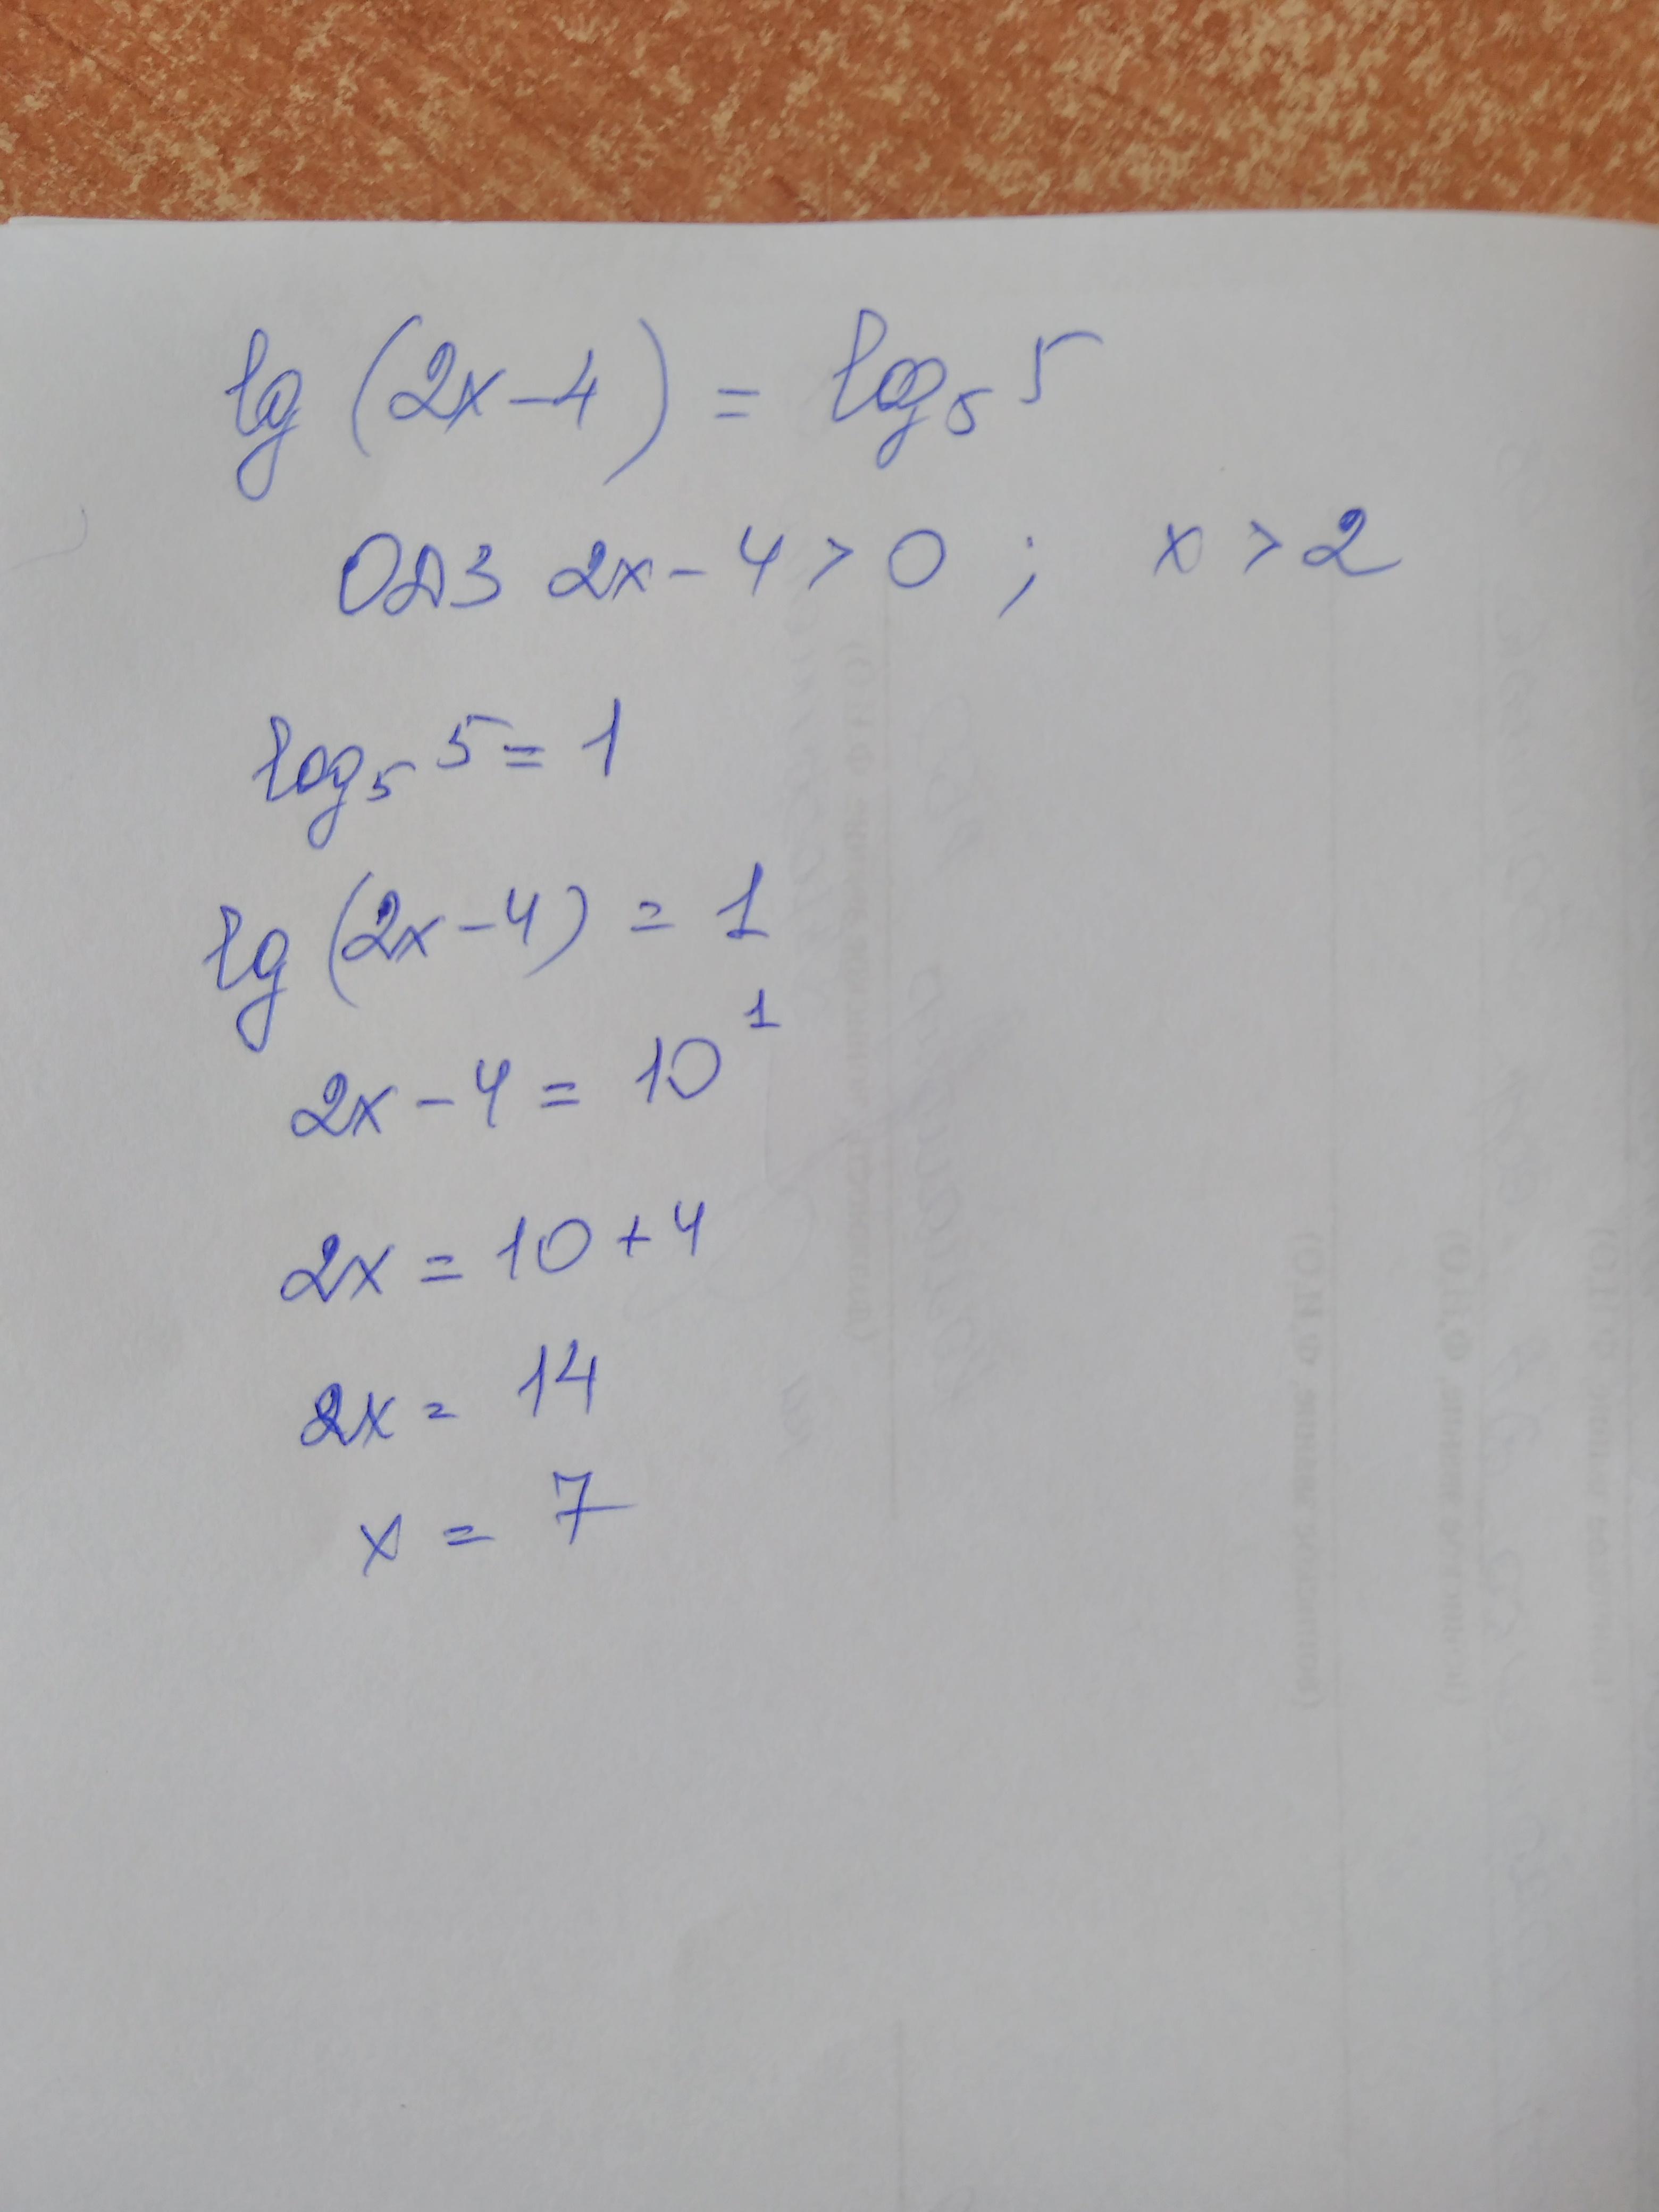 lg (2x-4) = log₅ 5
ОДЗ 2x-4>0; x>2
log₅ 5=1
lg (2x-4) = 1
2x-4=10¹
2x=10+4
2x=14
x=7